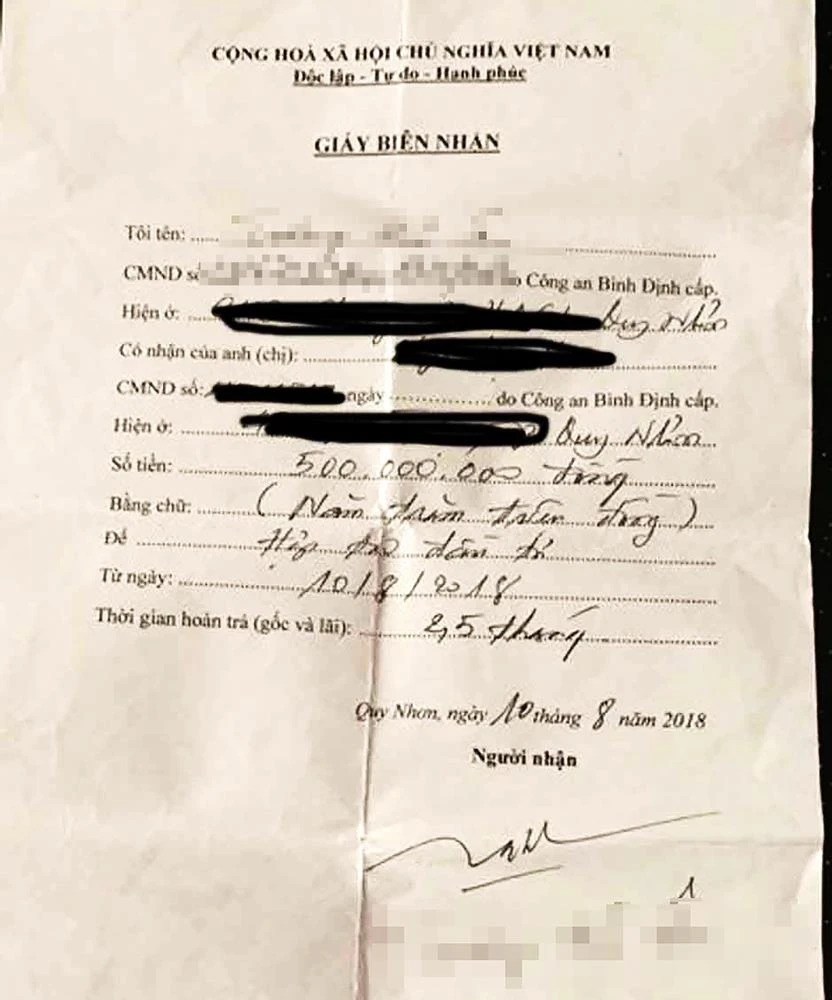 CỘNG HOÀ XÃ HỘI CHỦ NGHĨA VIỆT NAM
Độc lập - Tự do - Hạnh phúc
GIẤY BIÊN NHẬN
Tôi tên: ......
CMND số Công an Bình Định cấp.
Hiện ở: Quy Nhơn
Có nhận của anh (chị): ..........
CMND số: ngày .............. do Công an Bình Định cấp.
Hiện ở: Quy Nhơn
Số tiền: 500.000.000 đồng
Bằng chữ: (Năm trăm triệu đồng)
Để Hợp tác đầu tư
Từ ngày: 10/8/2018
Thời gian hoàn trả (gốc và lãi): 2,5 tháng
Quy Nhơn, ngày 10 tháng 8 năm 2018
Người nhận